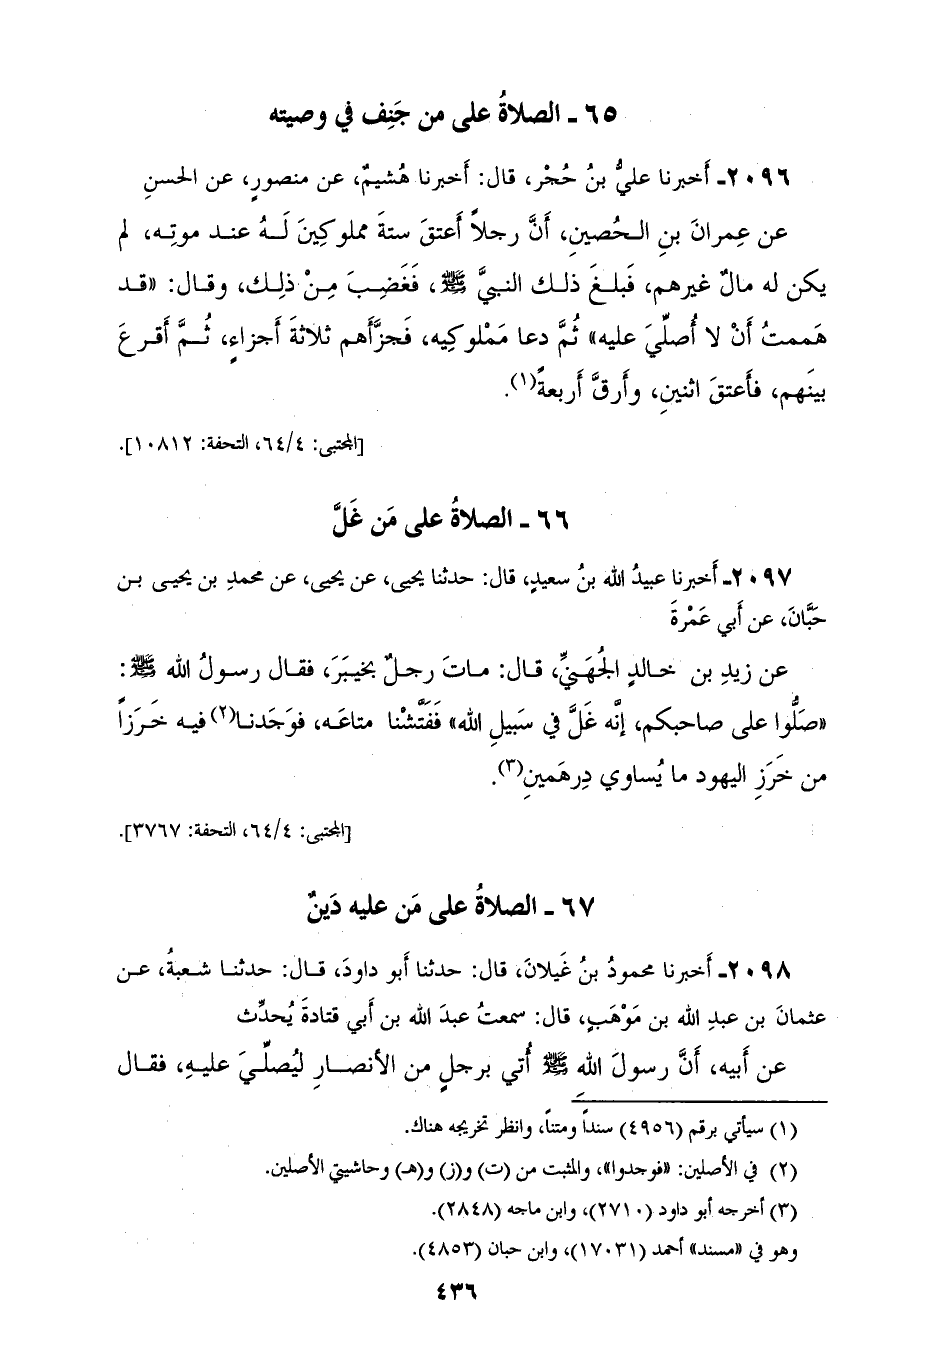 ٦٥ ـ الصلاةُ على من جَنِف في وصيته
٢٠٩٦ـ أَخبرنا عليُّ بنُ حُجْر، قال: أَخبرنا هُشيمٌ، عن منصورٍ، عن الحسنِ
عن عِمرانَ بنِ الـحُصينِ، أَنَّ رجلاً أَعتقَ ستةَ مملوكِينَ لَـهُ عنـد موتِـه، لم
يكن له مالٌ غيرهم، فَبلـغَ ذلـك النبيَّ ﷺ، فَغَضِـبَ مِـنْ ذلِـك، وقـال: «قـد
هَممـتُ أَنْ لا أُصلِّـيَ عليه» ثُمَّ دعا مَمْلوكِيه، فَجزَّأَهم ثلاثةَ أَجزاءٍ، ثُـمَّ أَقـرعَ
بينَهم، فأَعتقَ اثنينِ، وأَرقَّ أَربعةً(١).
[المجتبى: ٦٤/٤، التحفة: ١٠٨١٢].
٦٦ ـ الصلاةُ على مَن غَلَّ
٢٠٩٧ـ أَخبرنا عبيدُ الله بنُ سعيدٍ، قال: حدثنا يحيى، عن يحيى، عن محمدِ بن يحيـى بـن
حَبَّانَ، عن أَبي عَمْرةَ
عن زيدِ بن خالدٍ الجُهَنيِّ، قـال: مـاتَ رجـلٌ بخَيبَرَ، فقـال رسـولُ الله ﷺ:
«صَلُّوا على صاحبكم، إِنَّه غَلَّ في سَبيلِ الله» فَفَتَّشْنا متاعَـه، فوَجَدنـا(٢)فيـه خَـرَزاً
من خَرَزِ اليهود ما يُساوي دِرهَمينِ(٣).
[المجتبى: ٦٤/٤، التحفة: ٣٧٦٧].
٦٧ ـ الصلاةُ على مَن عليه دَينٌ
٢٠٩٨ـ أَخبرنا محمودُ بنُ غَيلانَ، قال: حدثنا أَبو داودَ، قـال: حدثنـا شـعبةُ، عـن
عثمانَ بن عبدِ الله بن مَوْهَبٍ، قال: سمعتُ عبدَ الله بن أَبي قتادةَ يُحدِّث
عن أَبيه، أَنَّ رسولَ الله ﷺ أُتي برجلٍ من الأَنصـارِ لِيُصلِّـيَ عليـهِ، فقـال
(١) سيأتي برقم (٤٩٥٦) سنداً ومتناً، وانظر تخريجه هناك.
(٢) في الأصلين: «فوجدوا»، والمثبت من (ت) و(ز) و(هـ) وحاشيتي الأصلين.
(٣) أخرجه أبو داود (٢٧١٠)، وابن ماجه (٢٨٤٨).
وهو في «مسند» أحمد (١٧٠٣١)، وابن حبان (٤٨٥٣).
٤٣٦